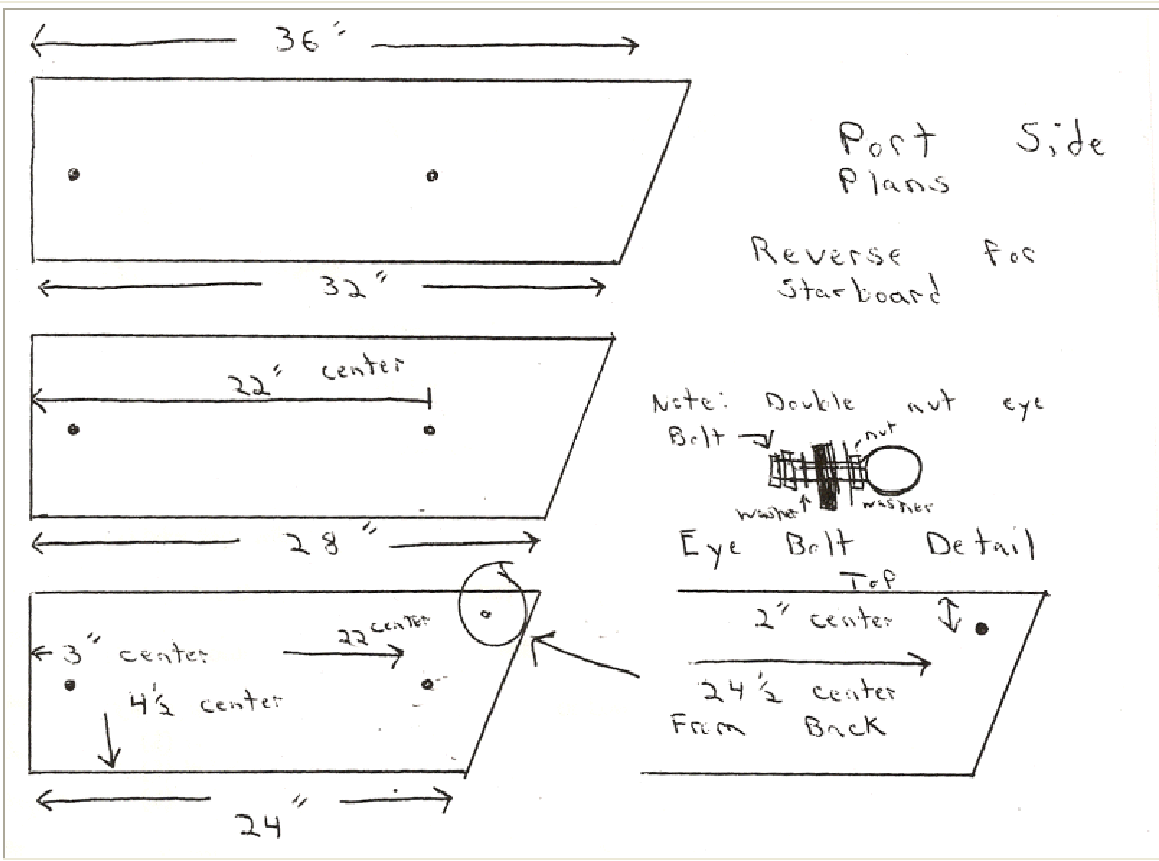 36"
32"
22" center
28"
3" center
22 center
4 1/2 center
24"
Port Side
Plans
Reverse For
Starboard
Note: Double nut eye
Bolt
nut
washer
washer
Eye Bolt Detail
Top
2" center
24 1/2 center
From Back